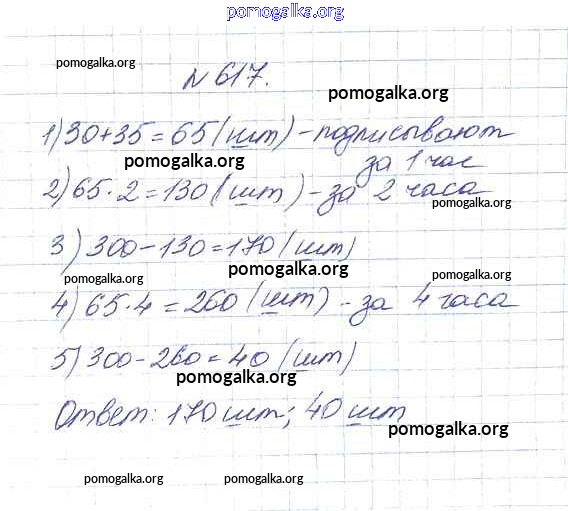 pomogalka.org
pomogalka.org
№ 617.
pomogalka.org
1) 30+35=65 (шт) - подписывают
pomogalka.org
за 1 час
2) 65·2=130 (шт) - за 2 часа
pomogalka.org
3) 300-130=170 (шт)
pomogalka.org
pomogalka.org
pomogalka.org
4) 65·4=260 (шт) - за 4 часа
5) 300-260=40 (шт)
pomogalka.org
Ответ: 170 шт; 40 шт
pomogalka.org
pomogalka.org
pomogalka.org